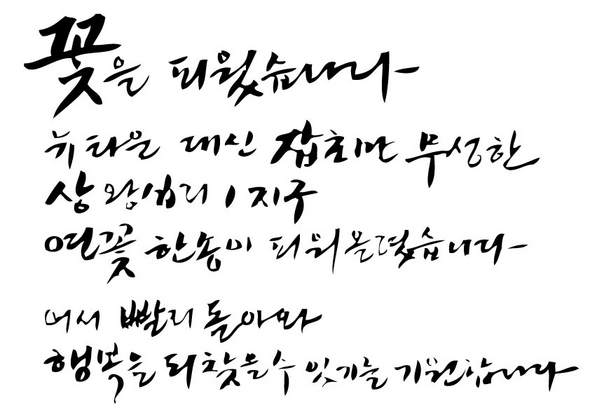 꽃을 피웠습니다
뉴타운 대신 잡초만 무성한
상왕십리 1지구
연꽃 한송이 피워올렸습니다
어서 빨리 돌아와
행복을 되찾을수 있기를 기원합니다